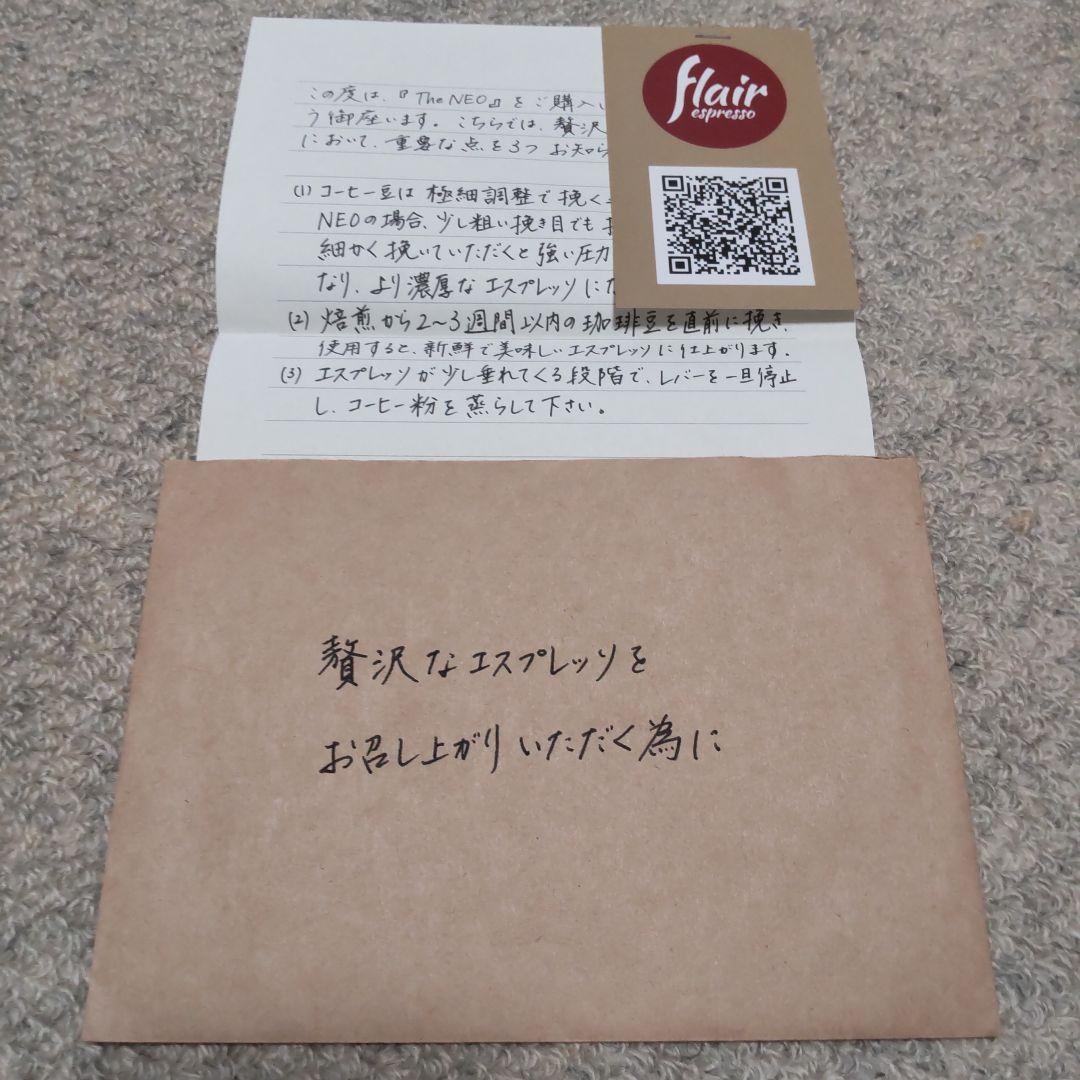 この度は、『The NEO』をご購入
う御座います。こちらでは、贅沢
において、重要な点を3つお知ら
(1) コーヒー豆は極細調整で挽く
NEOの場合、少し粗い挽き目でも
細かく挽いていただくと強い圧力
なり、より濃厚なエスプレッソに
(2) 焙煎から2〜3週間以内の珈琲豆を直前に挽き、
使用すると、新鮮で美味しいエスプレッソに仕上がります。
(3) エスプレッソが少し垂れてくる段階で、レバーを一旦停止
し、コーヒー粉を蒸らして下さい。
flair
espresso
贅沢なエスプレッソを
お召し上がりいただく為に